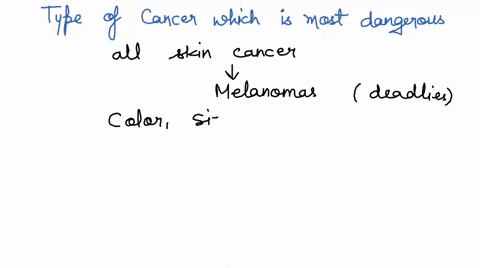 Type of Cancer which is most dangerous
all skin cancer
↓
Melanomas (deadlies)
Color, Si